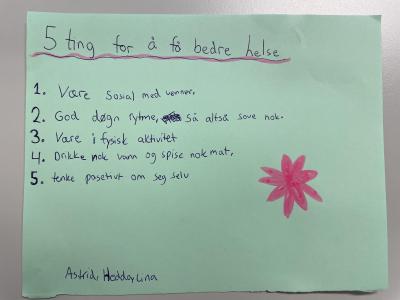 5 ting for å få bedre helse
1. Være sosial med venner.
2. God døgn rytme, så altså sove nok.
3. Være i fysisk aktivitet
4. Drikke nok vann og spise nok mat.
5. tenke posetivt om seg selv
Astrid, Hedda, Lina